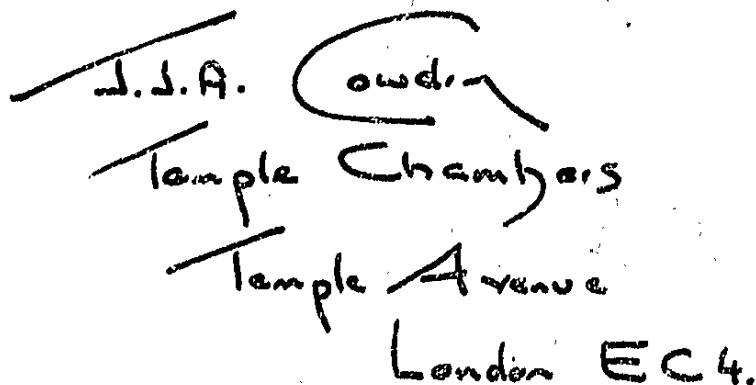 J.J.A. Cowdry
Temple Chambers
Temple Avenue
London EC4.